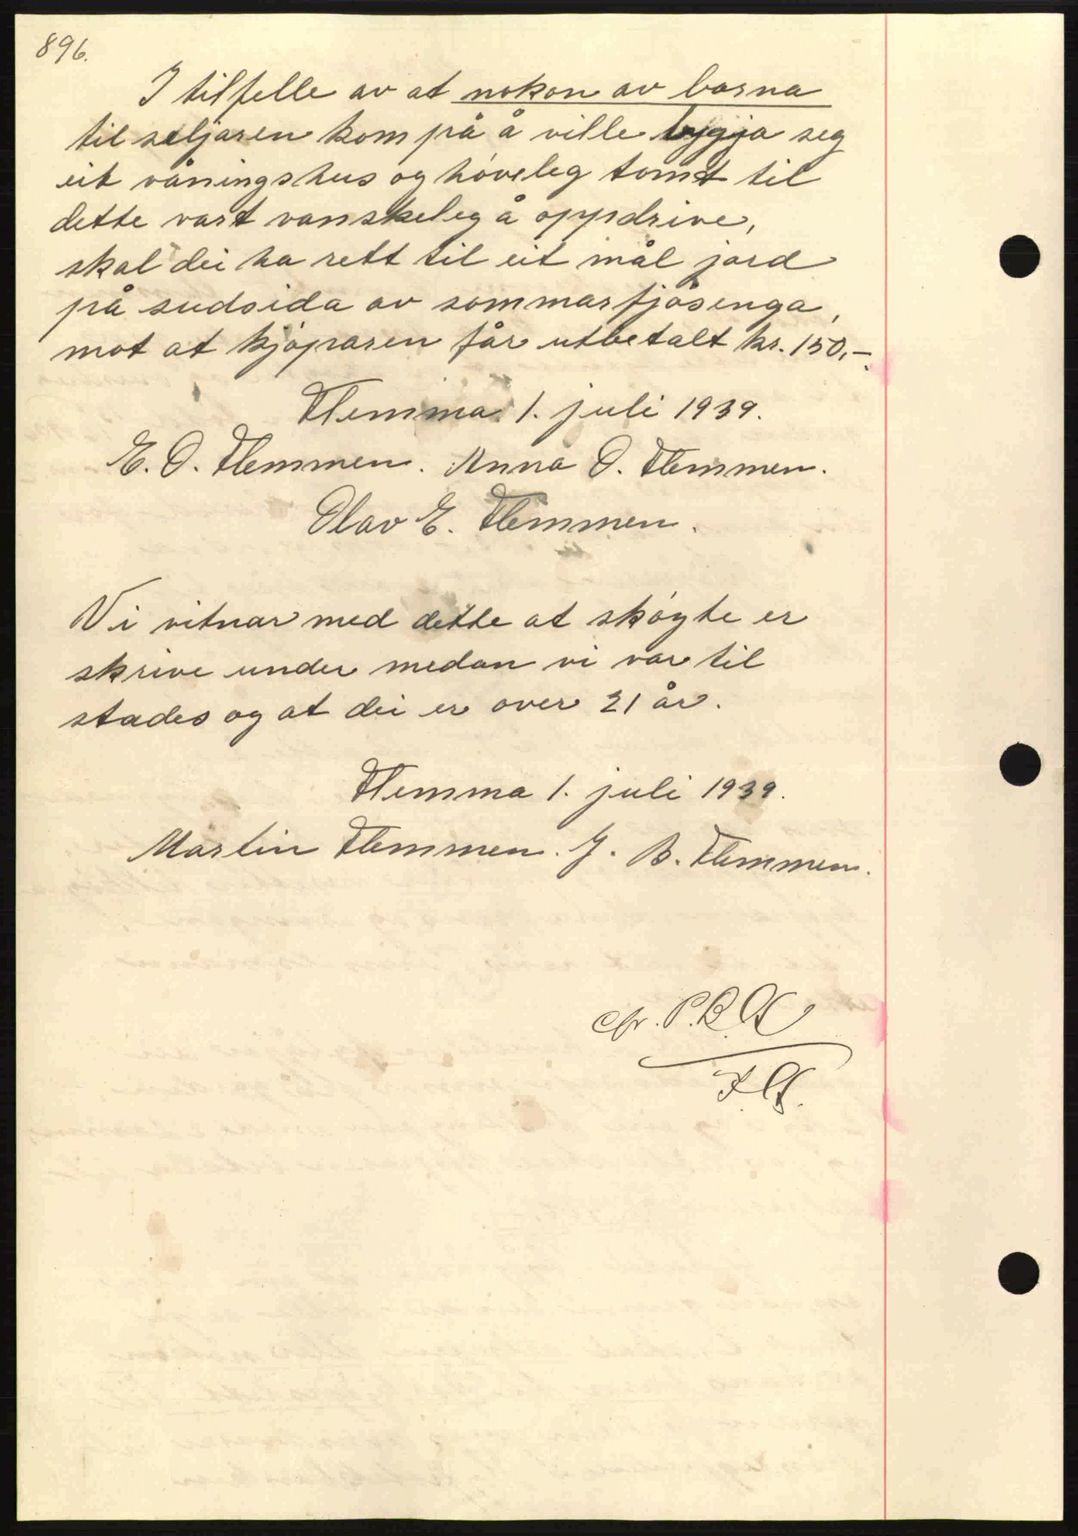 896.
I tilfelle av at nokon av borna
til seljaren kom på å ville byggja seg
eit våningshus og høveleg tomt til
dette vart vanskeleg å oppdrive,
skal dei ha rett til eit mål jord
på sudsida av sommarfjøsenga,
mot at kjøparen får utbetalt kr. 150,-.
Flemma 1. juli 1939.
E. O. Flemmen. Anna O. Flemmen.
Olav E. Flemmen.
Vi vitnar med dette at skøgte er
skrive under medan vi var til
stades og at dei er over 21 år.
Flemma 1. juli 1939.
Martin Flemmen. J. B. Flemmen.
cfr.